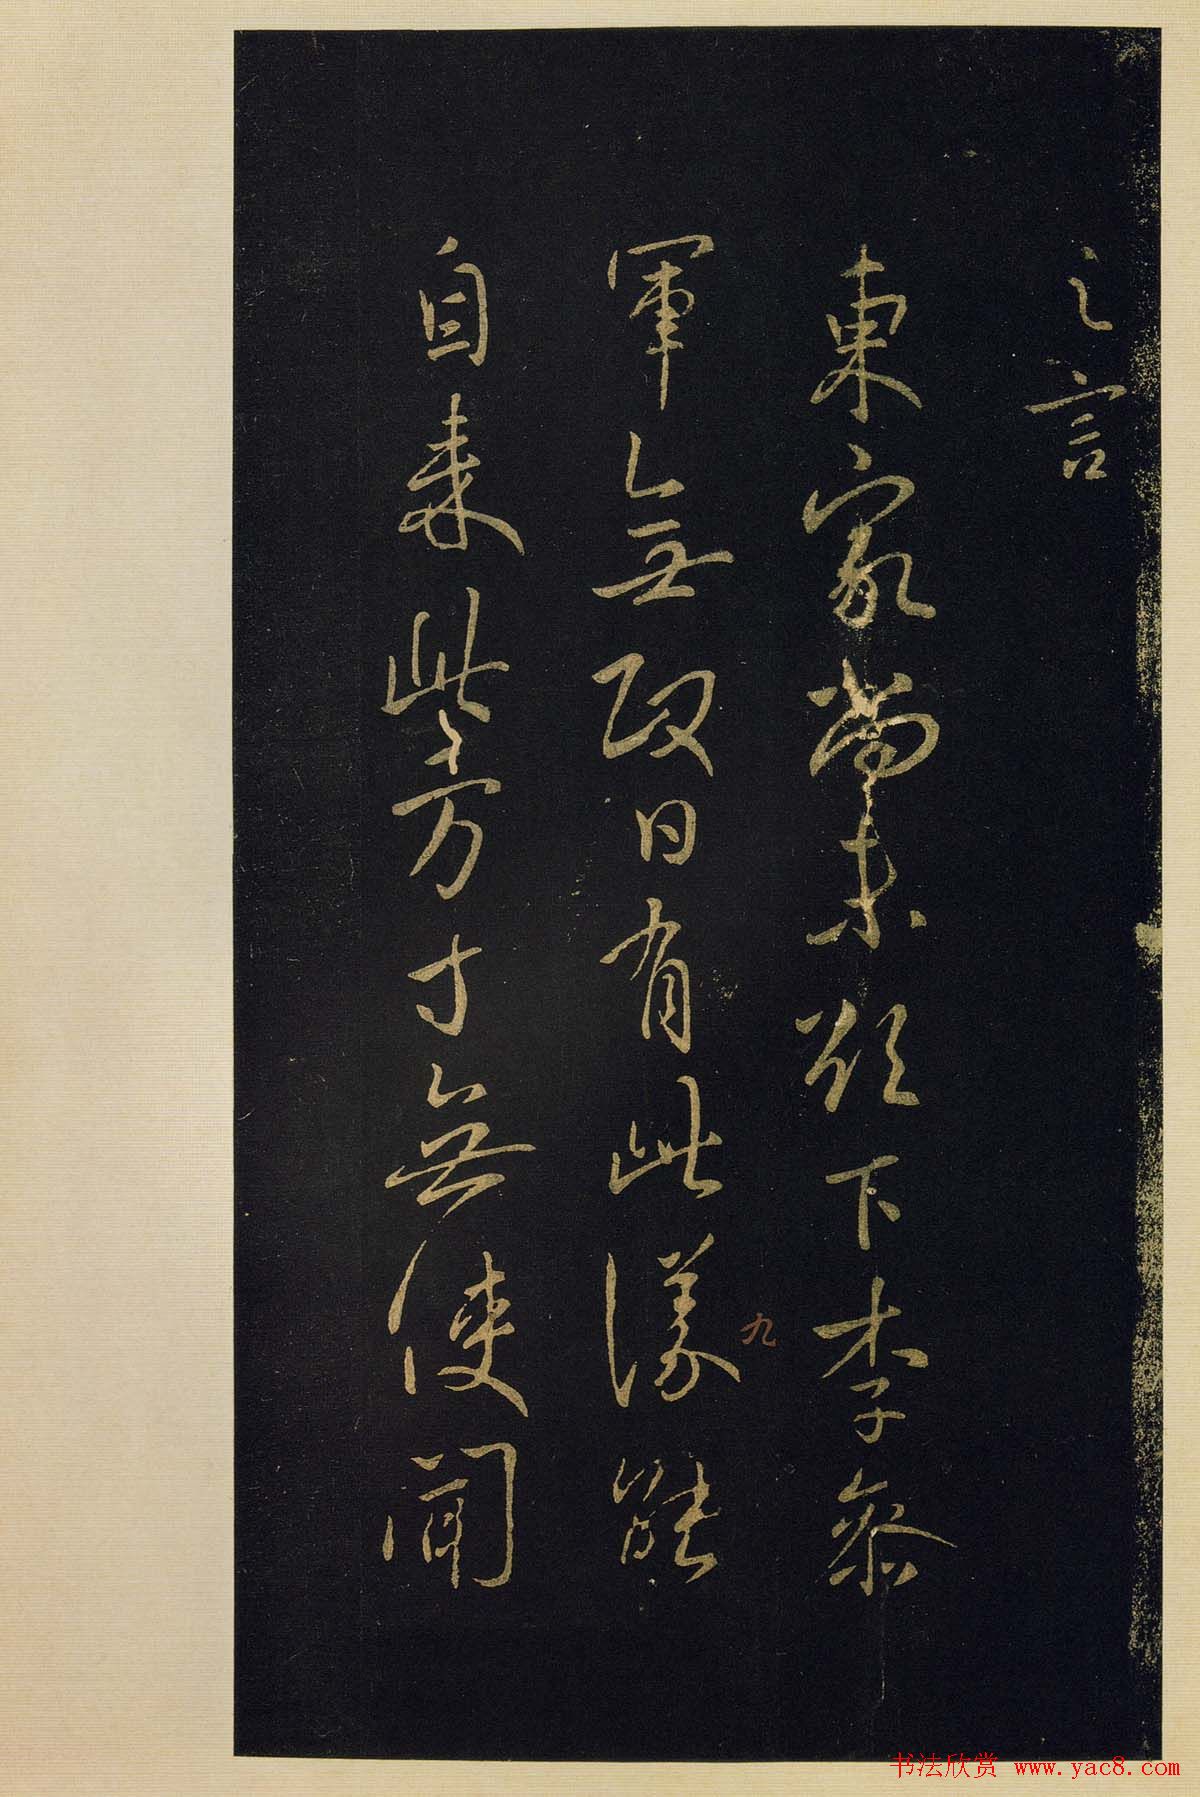 之言
東家當未下李參
軍無日有此議能
自來此方寸無使聞
九
书法欣赏 www.yac8.com